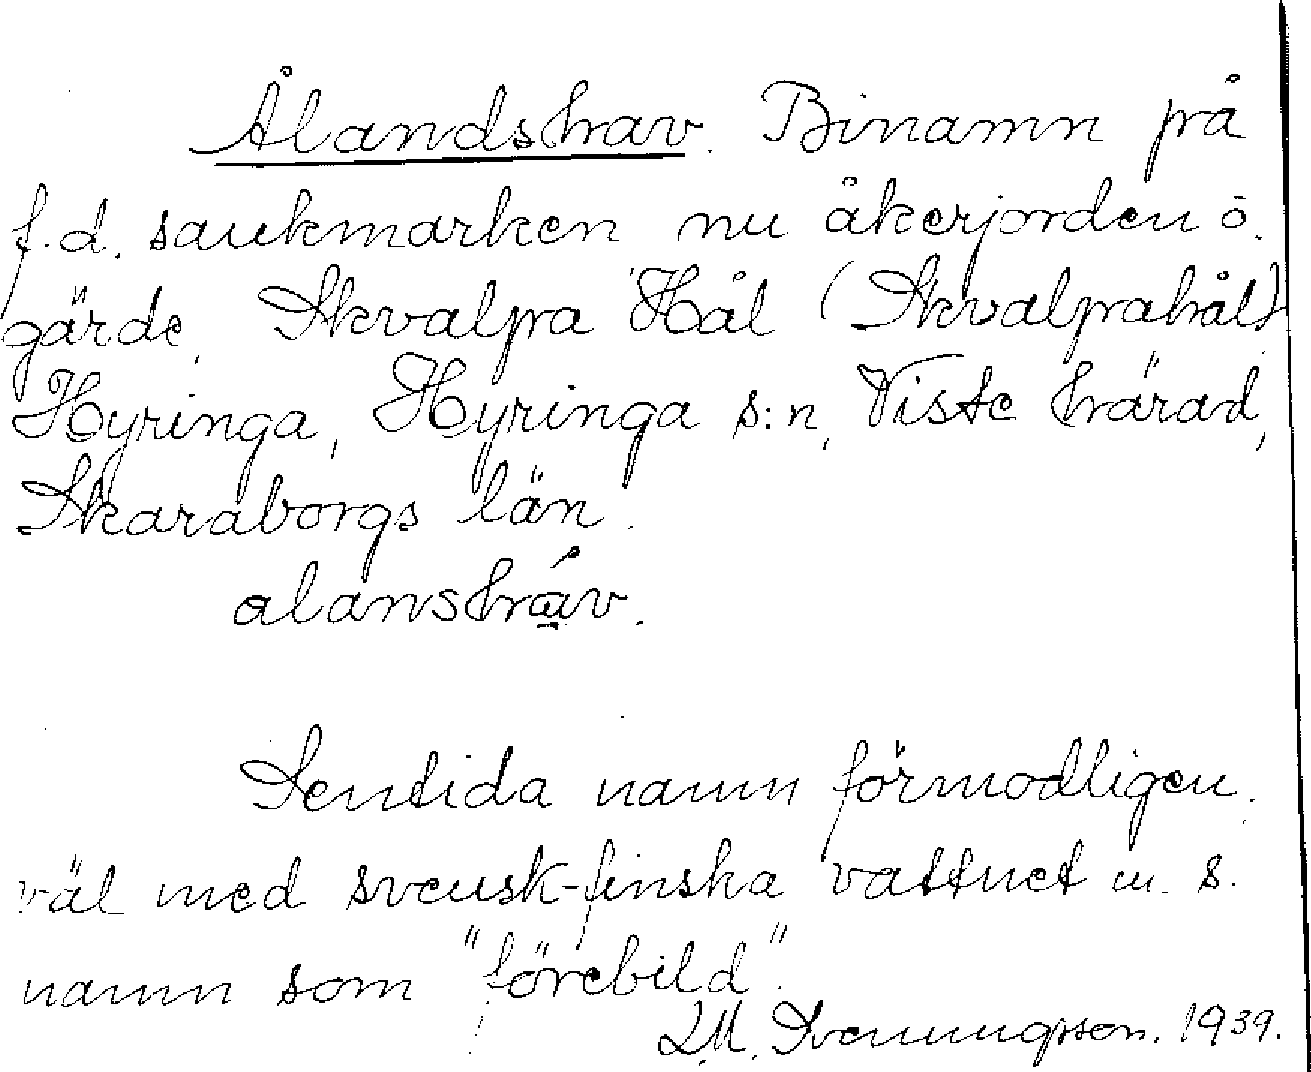 Ålandshav. Binamn på
f.d. saukmarken nu åkerjorden ö.
gärde, Skvalpa Hål (Skvalpahål)
Hyringa, Hyringa s:n, Viste härad,
Skaraborgs län.
alanshav.
Sentida namn förmodligen.
väl med svensk-finska vattnet m. s.
namn som "förebild".
L.M. Svenungsson. 1939.